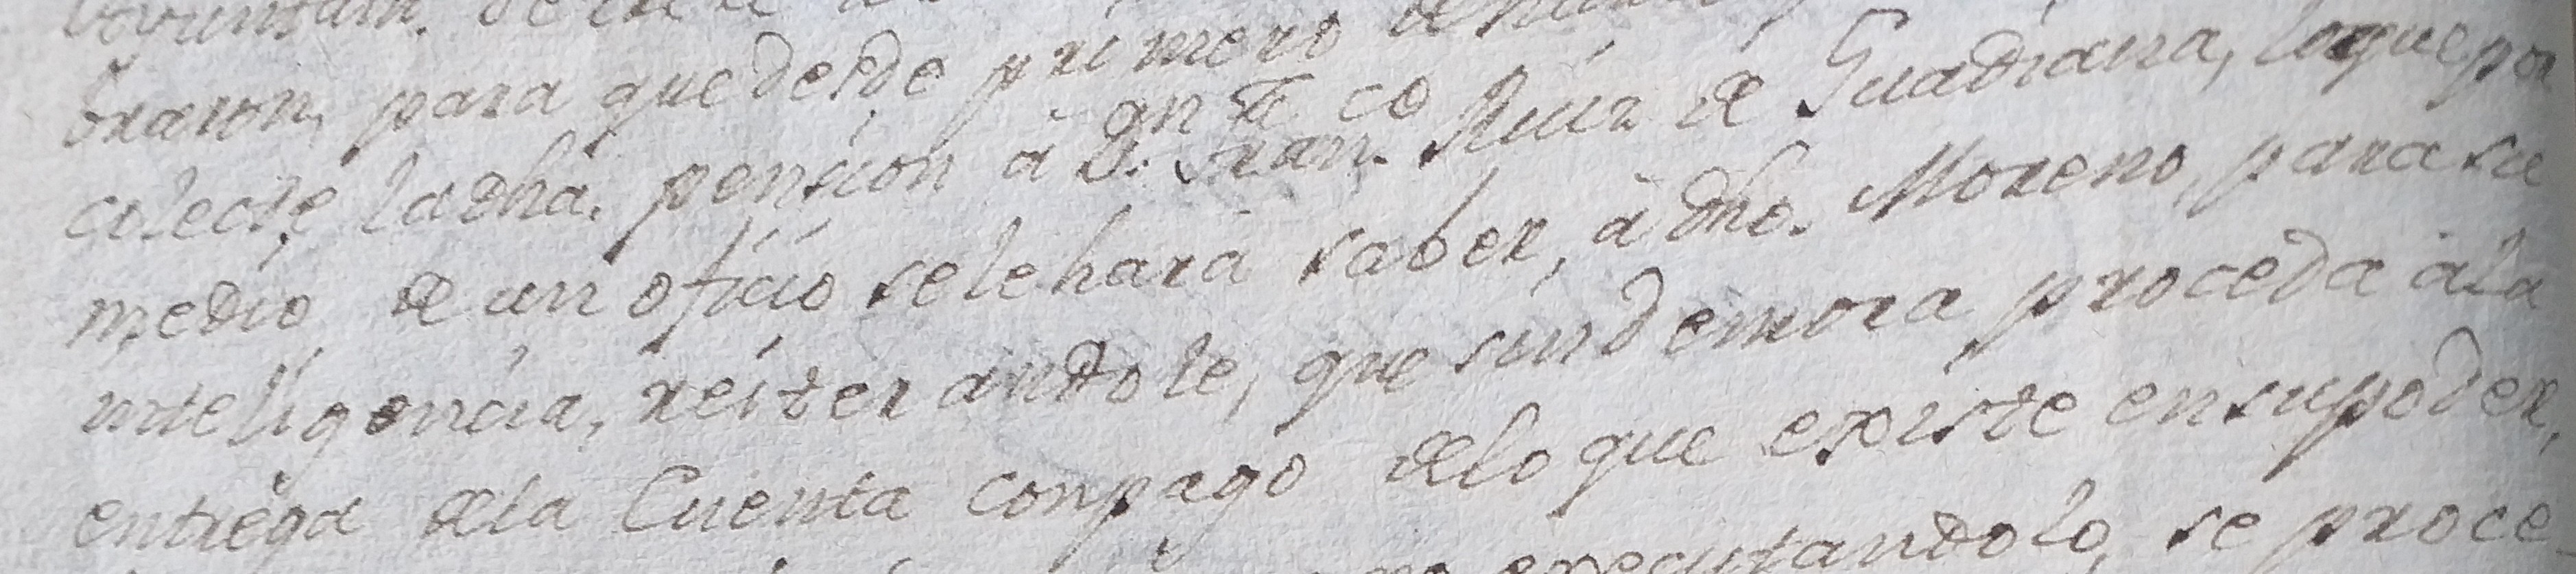 Ayuntam.
braron, para que desde primero de
colecte la dha. pension à D. Fran.co Ruiz de Guadiana, lo que por
medio de un oficio se le hará saber, à dho. Moreno, para su
inteligencia, reiterandole, que sin demora proceda à la
entrega de la Cuenta con pago de lo que existe en su poder,
executandolo, se proce-